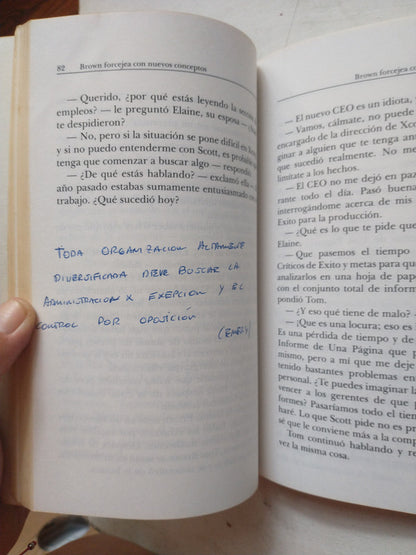 82 Brown forcejea con nuevos conceptos
— Querido, ¿por qué estás leyendo la sección
empleos? — le preguntó Elaine, su esposa —
te despidieron?
— No, pero si la situación se pone difícil en
y si no puedo entenderme con Scott, es probable
tenga que comenzar a buscar algo — respondió
— ¿De qué estás hablando? — exclamó ella —
año pasado estabas sumamente entusiasmado con
trabajo. ¿Qué sucedió hoy?
TODA ORGANIZACION ALTAMENTE
DIVERSIFICADA DEBE BUSCAR LA
ADMINISTRACION X EXEPCION Y EL
CONTROL POR OPOSICIÓN
Brown forcejea co
— El nuevo CEO es un idiota,
— Vamos, cálmate, no puede
encargado de la dirección de Xco
ginar a alguien que te tenga am
que sucedió realmente. No me
limítate a los hechos.
— El CEO no me dejó en paz
rante todo el día. Pasó buena
interrogándome acerca de mis
Exito para la producción.
— ¿Qué es lo que te pide que
Elaine.
— Que pasemos el tiempo
Críticos de Exito y metas para que
analizarlos en una hoja de pape
con el conjunto total de informe
pondió Tom.
— ¿Y eso qué tiene de malo? —
— ¡Que es una locura; eso es
Es una pérdida de tiempo y de
Informe de Una Página que p
mismo, pero a mí que me deje
tenido bastantes problemas en
personal. ¿Te puedes imaginar la
vencer a los gerentes de que p
formes? Pasaríamos todo el tiem
haré. Lo que Scott pide no es pr
sé que le conviene más a la comp
Tom continuó hablando y re
vez la misma cosa.